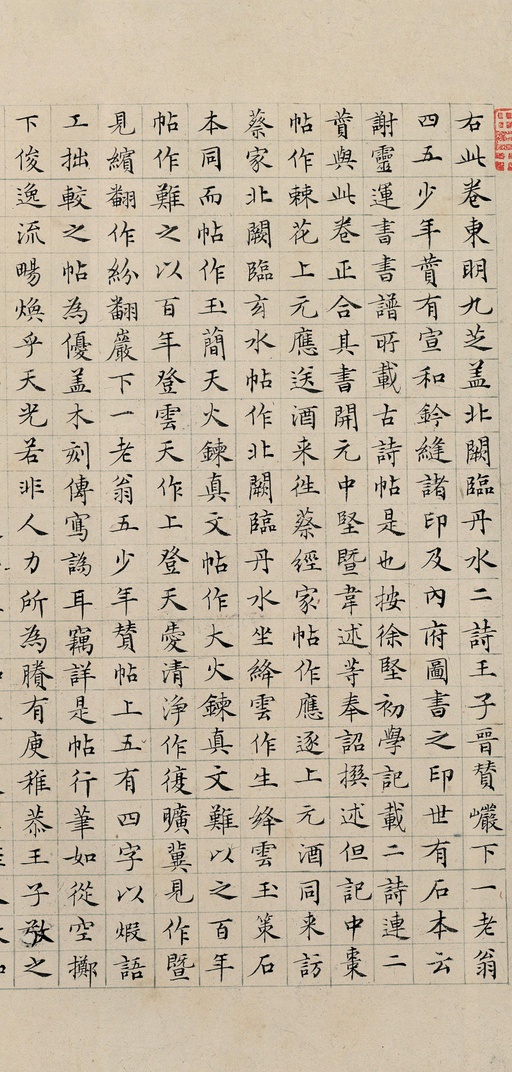 右此卷東明九芝盖北闕臨丹水二詩王子晉贊巗下一老翁
四五少年賛有宣和鈐縫諸印及內府圖書之印世有石本云
謝靈運書書譜所載古詩帖是也按徐堅初學記載二詩連二
賛與此卷正合其書開元中堅暨韋述等奉詔撰述但記中棗
帖作棘花上元應送酒来往蔡經家帖作應逐上元酒同来訪
蔡家北闕臨玄水帖作北闕臨丹水坐絳雲作生絳雲玉策石
本同而帖作玉蕳天火鍊真文帖作大火鍊真文難以之百年
帖作難之以百年登雲天作上登天愛清淨作復曠冀見作暨
見繽翻作紛翻巖下一老翁五少年賛帖上五有四字以煆語
工拙較之帖為優盖木刻傳寫譌耳竊詳是帖行筆如從空擲
下俊逸流暢焕乎天光若非人力所為賸有庾稚恭王子敬之